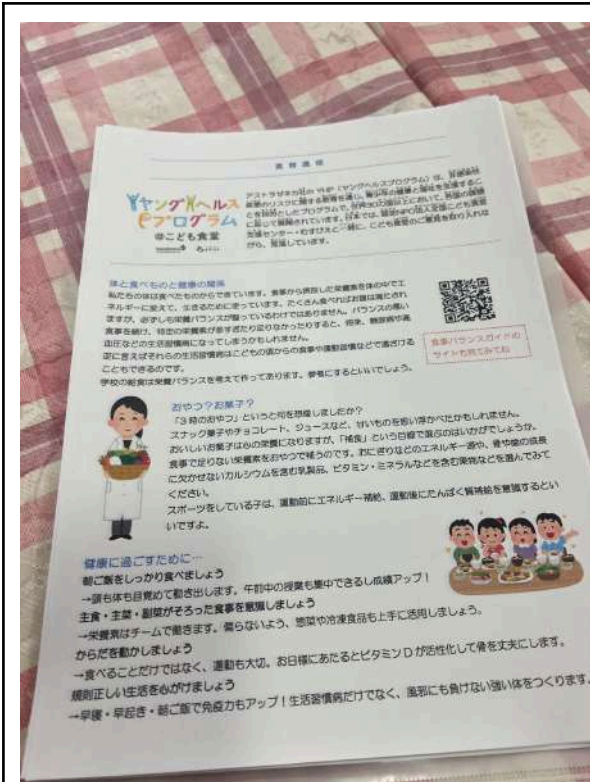 食育通信
ヤングヘルス
プログラム
@こども食堂
アストラゼネカ社の YHP（ヤングヘルスプログラム）は、非感染性
疾患のリスクに関する教育を通じ、青少年の健康と福祉を支援するこ
とを目的としたプログラムで、世界30カ国以上において、各国の課題
に応じて展開されています。日本では、認定NPO法人全国こども食堂
支援センター・むすびえと一緒に、こども食堂のご意見を取り入れな
がら、実施しています。
体と食べものと健康の関係
私たちの体は食べたものからできています。食事から摂取した栄養素を体の中でエ
ネルギーに変えて、生きるために使っています。たくさん食べればお腹は満たされ
ますが、必ずしも栄養バランスが整っているわけではありません。バランスの悪い
食事を続け、特定の栄養素が多すぎたり足りなかったりすると、将来、糖尿病や高
血圧などの生活習慣病になってしまうかもしれません。
逆に言えばそれらの生活習慣病はこどもの頃からの食事や運動習慣などで遠ざける
こともできるのです。
学校の給食は栄養バランスを考えて作ってあります。参考にするといいでしょう。
食事バランスガイドの
サイトも見てみてね
おやつ？お菓子？
「3時のおやつ」というと何を想像しましたか？
スナック菓子やチョコレート、ジュースなど、甘いものを思い浮かべたかもしれません。
おいしいお菓子は心の栄養になりますが、「補食」という目線で選ぶのはいかがでしょうか。
食事で足りない栄養素をおやつで補うのです。おにぎりなどのエネルギー源や、骨や歯の成長
に欠かせないカルシウムを含む乳製品、ビタミン・ミネラルなどを含む果物などを選んでみて
ください。
スポーツをしている子は、運動前にエネルギー補給、運動後にたんぱく質補給を意識するとい
いですよ。
健康に過ごすために…
朝ご飯をしっかり食べましょう
→頭も体も目覚めて動き出します。午前中の授業も集中できるし成績アップ！
主食・主菜・副菜がそろった食事を意識しましょう
→栄養素はチームで働きます。偏らないよう、惣菜や冷凍食品も上手に活用しましょう。
からだを動かしましょう
→食べることだけではなく、運動も大切。お日様にあたるとビタミンDが活性化して骨を丈夫にします。
規則正しい生活を心がけましょう
→早寝・早起き・朝ご飯で免疫力もアップ！生活習慣病だけでなく、風邪にも負けない強い体をつくります。